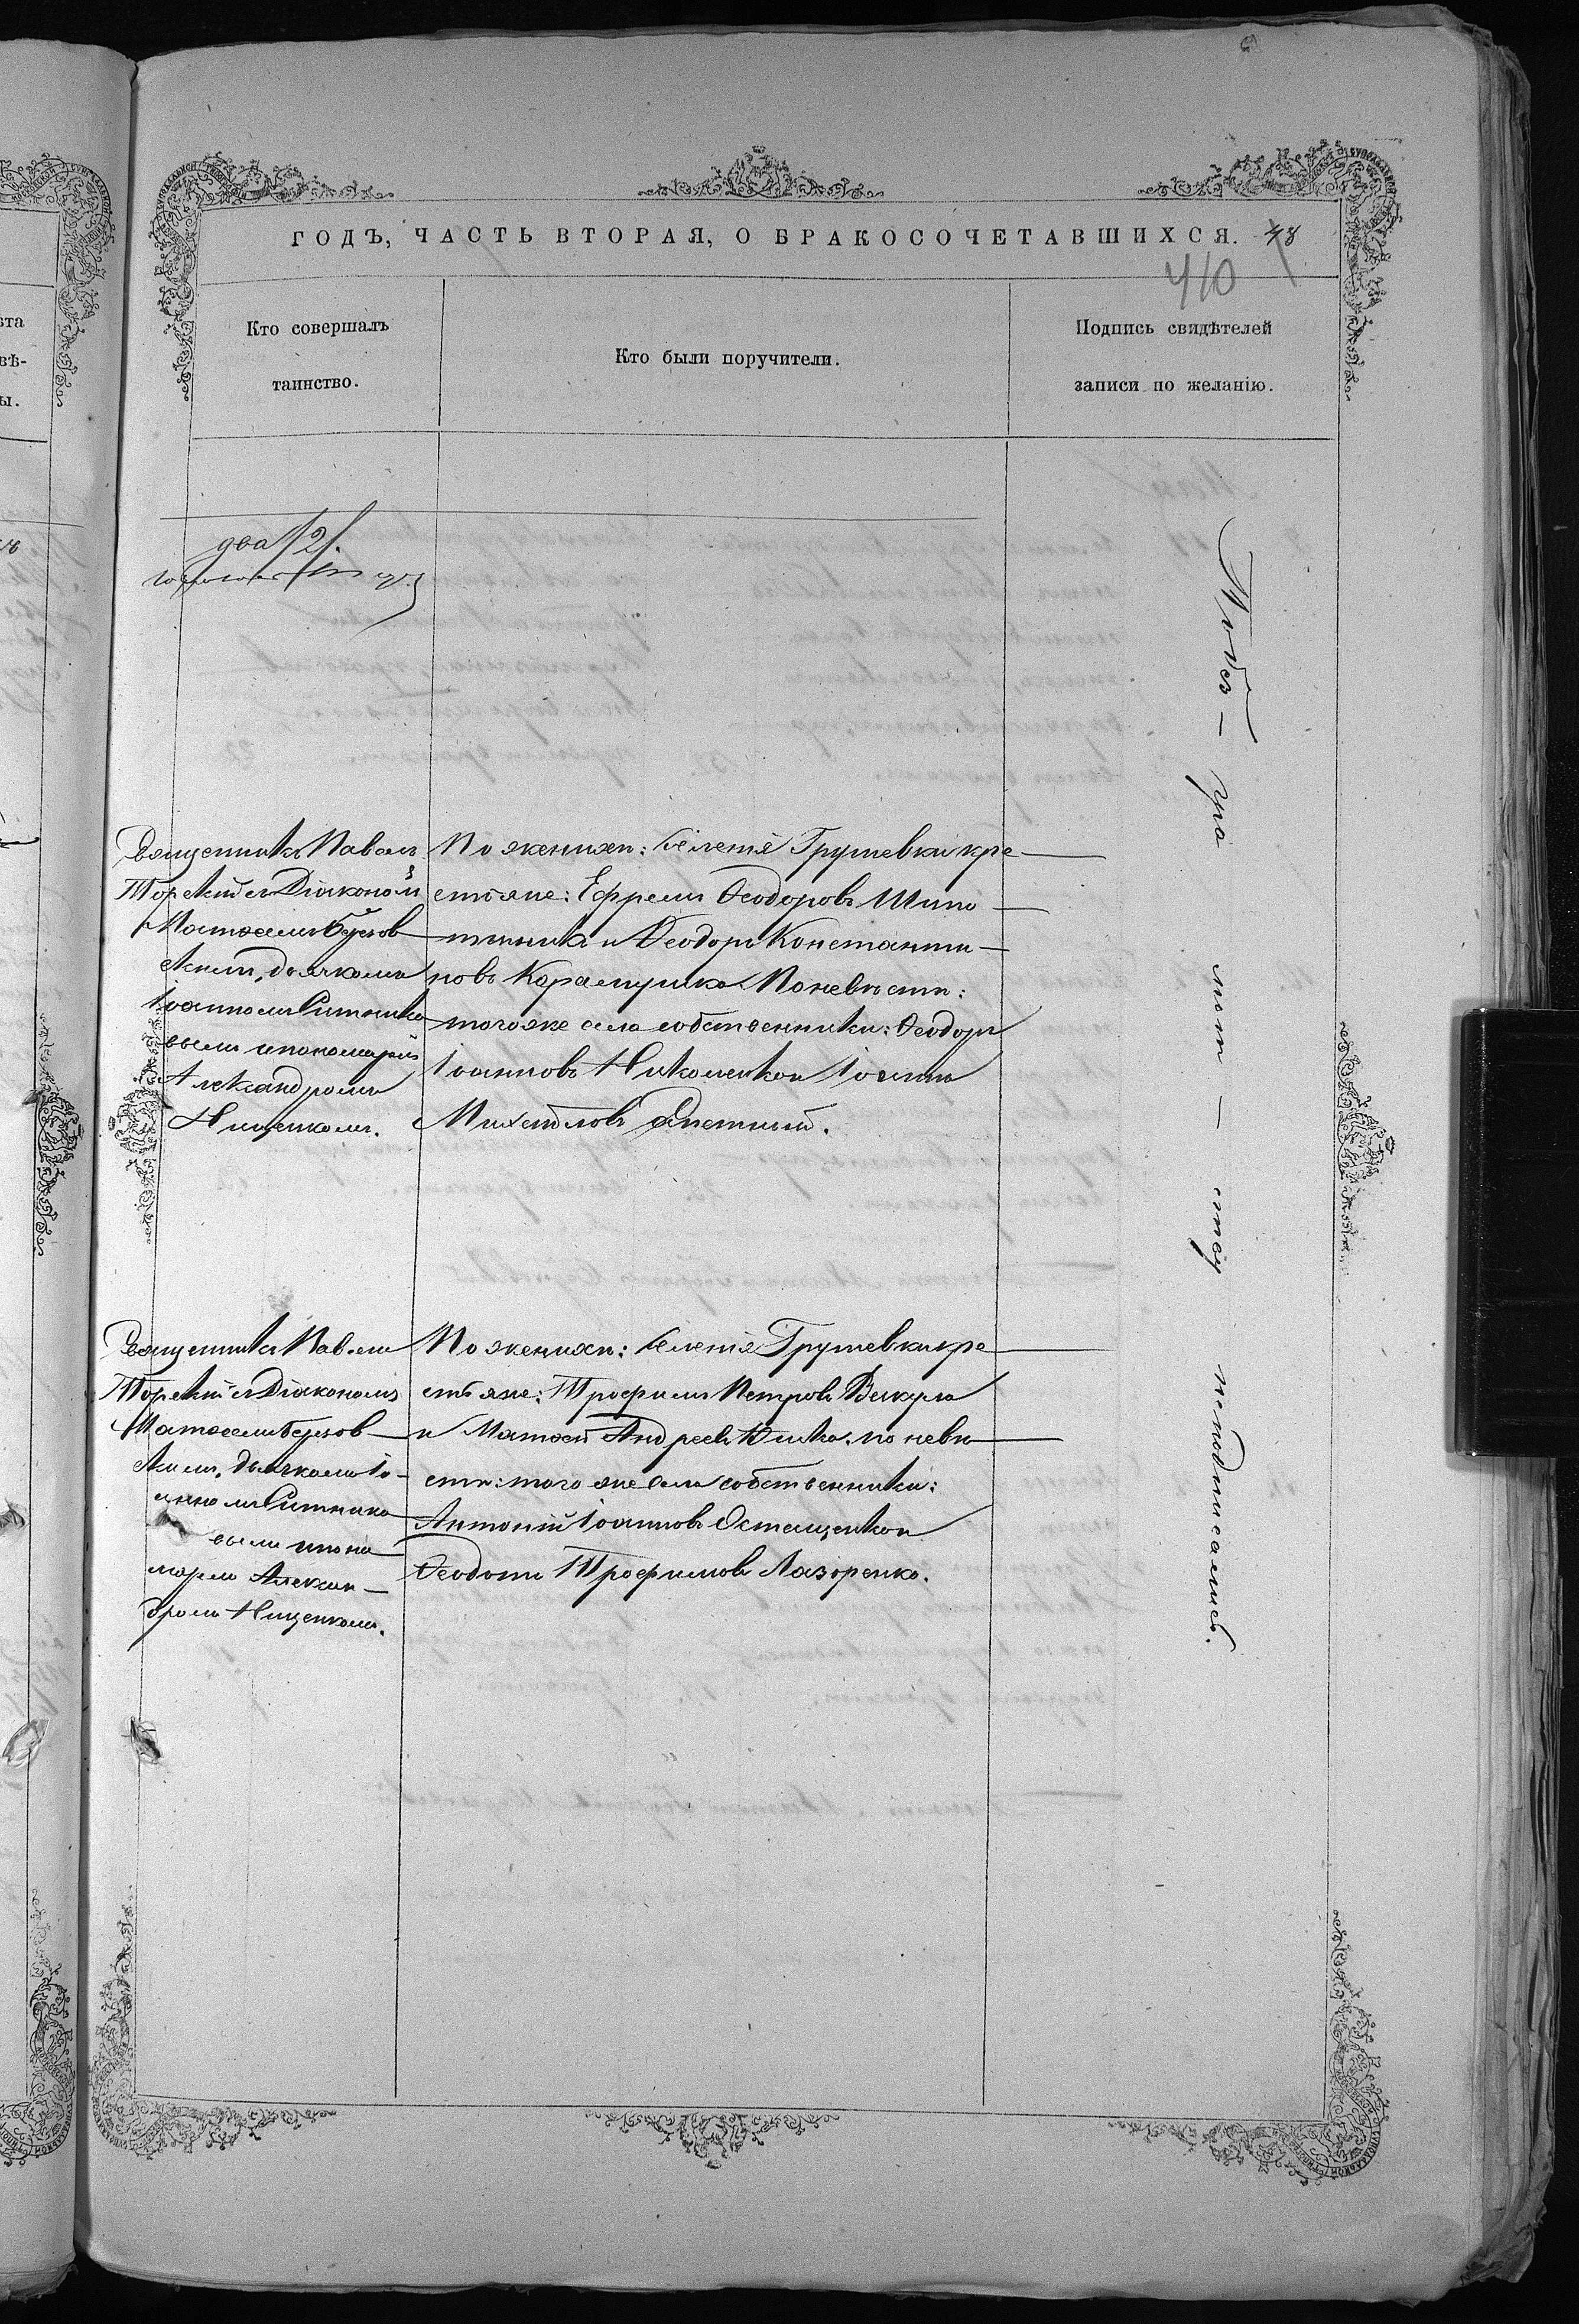 ГОДЪ, ЧАСТЬ ВТОРАЯ, О БРАКОСОЧЕТАВШИХСЯ. 48
410
Кто совершалъ
таинство.
Кто были поручители.
Подпись свидѣтелей
записи по желанію.
два /2/.
Священникъ Павелъ
Торскій съ Діакономъ
Матѳеемъ Безов
скимъ, дьячкомъ
Іоанномъ Ситнико
вымъ и пономаремъ
Александромъ
Нищенкомъ.
По женихѣ: Селенія Грушевки кре
стьяне: Ефремъ Ѳеодоровъ
и Ѳеодоръ Константи
новъ Карампушка По невѣстѣ:
того же села собственники: Ѳеодоръ
Іоанновъ Николенко и Іоаннъ
Михайловъ
Священникъ Павелъ
Торскій съ Діакономъ
Матѳеемъ Безов
скимъ, дьячкомъ Іо
анномъ Ситнико
вымъ и поно
маремъ Алексан
дромъ Нищенкомъ.
По женихѣ: Селенія Грушевки кре
стьяне: Трофимъ Петровъ Викула
и Матѳей Андреевъ по невѣ
стѣ: того же села собственники:
Антоній Іоанновъ Остащенко и
Ѳеодотъ Трофимовъ Лазоренко.
гра мот ству неподписались.